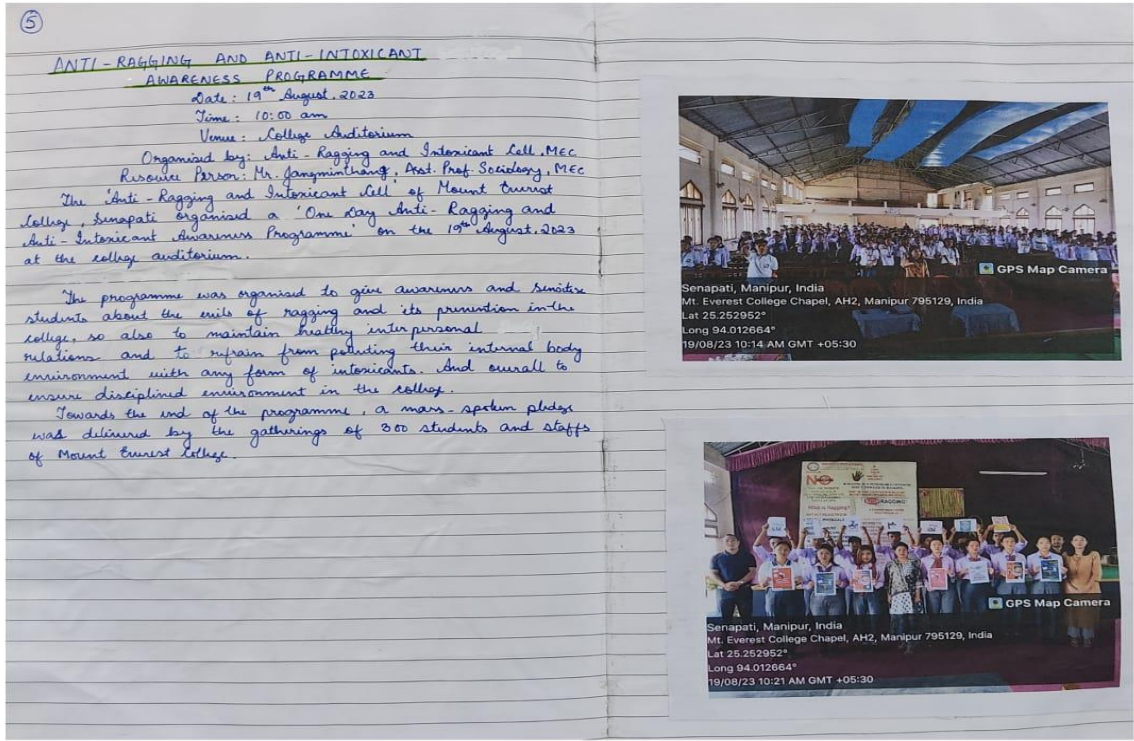 5
ANTI-RAGGING AND ANTI-INTOXICANT
AWARENESS PROGRAMME
Date: 19th August, 2023
Time: 10:00 am
Venue: College Auditorium
Organised by: Anti-Ragging and Intoxicant Cell, MEC
Resource Person: Mr. Jangminthang, Asst. Prof. Sociology, MEC
The 'Anti-Ragging and Intoxicant Cell' of Mount Everest
College, Senapati organised a 'One Day Anti-Ragging and
Anti-Intoxicant Awareness Programme' on the 19th August, 2023
at the college auditorium.
The programme was organised to give awareness and sensitize
students about the evils of ragging and its prevention in the
college, so also to maintain healthy inter personal
relations and to refrain from polluting their internal body
environment with any form of intoxicants. And overall to
ensure disciplined environment in the college.
Towards the end of the programme, a mass-spoken pledge
was delivered by the gatherings of 300 students and staffs
of Mount Everest College.
GPS Map Camera
Senapati, Manipur, India
Mt. Everest College Chapel, AH2, Manipur 795129, India
Lat 25.252952°
Long 94.012664°
19/08/23 10:14 AM GMT +05:30
NO
What is Ragging?
RAGGING
GPS Map Camera
Senapati, Manipur, India
Mt. Everest College Chapel, AH2, Manipur 795129, India
Lat 25.252952°
Long 94.012664°
19/08/23 10:21 AM GMT +05:30